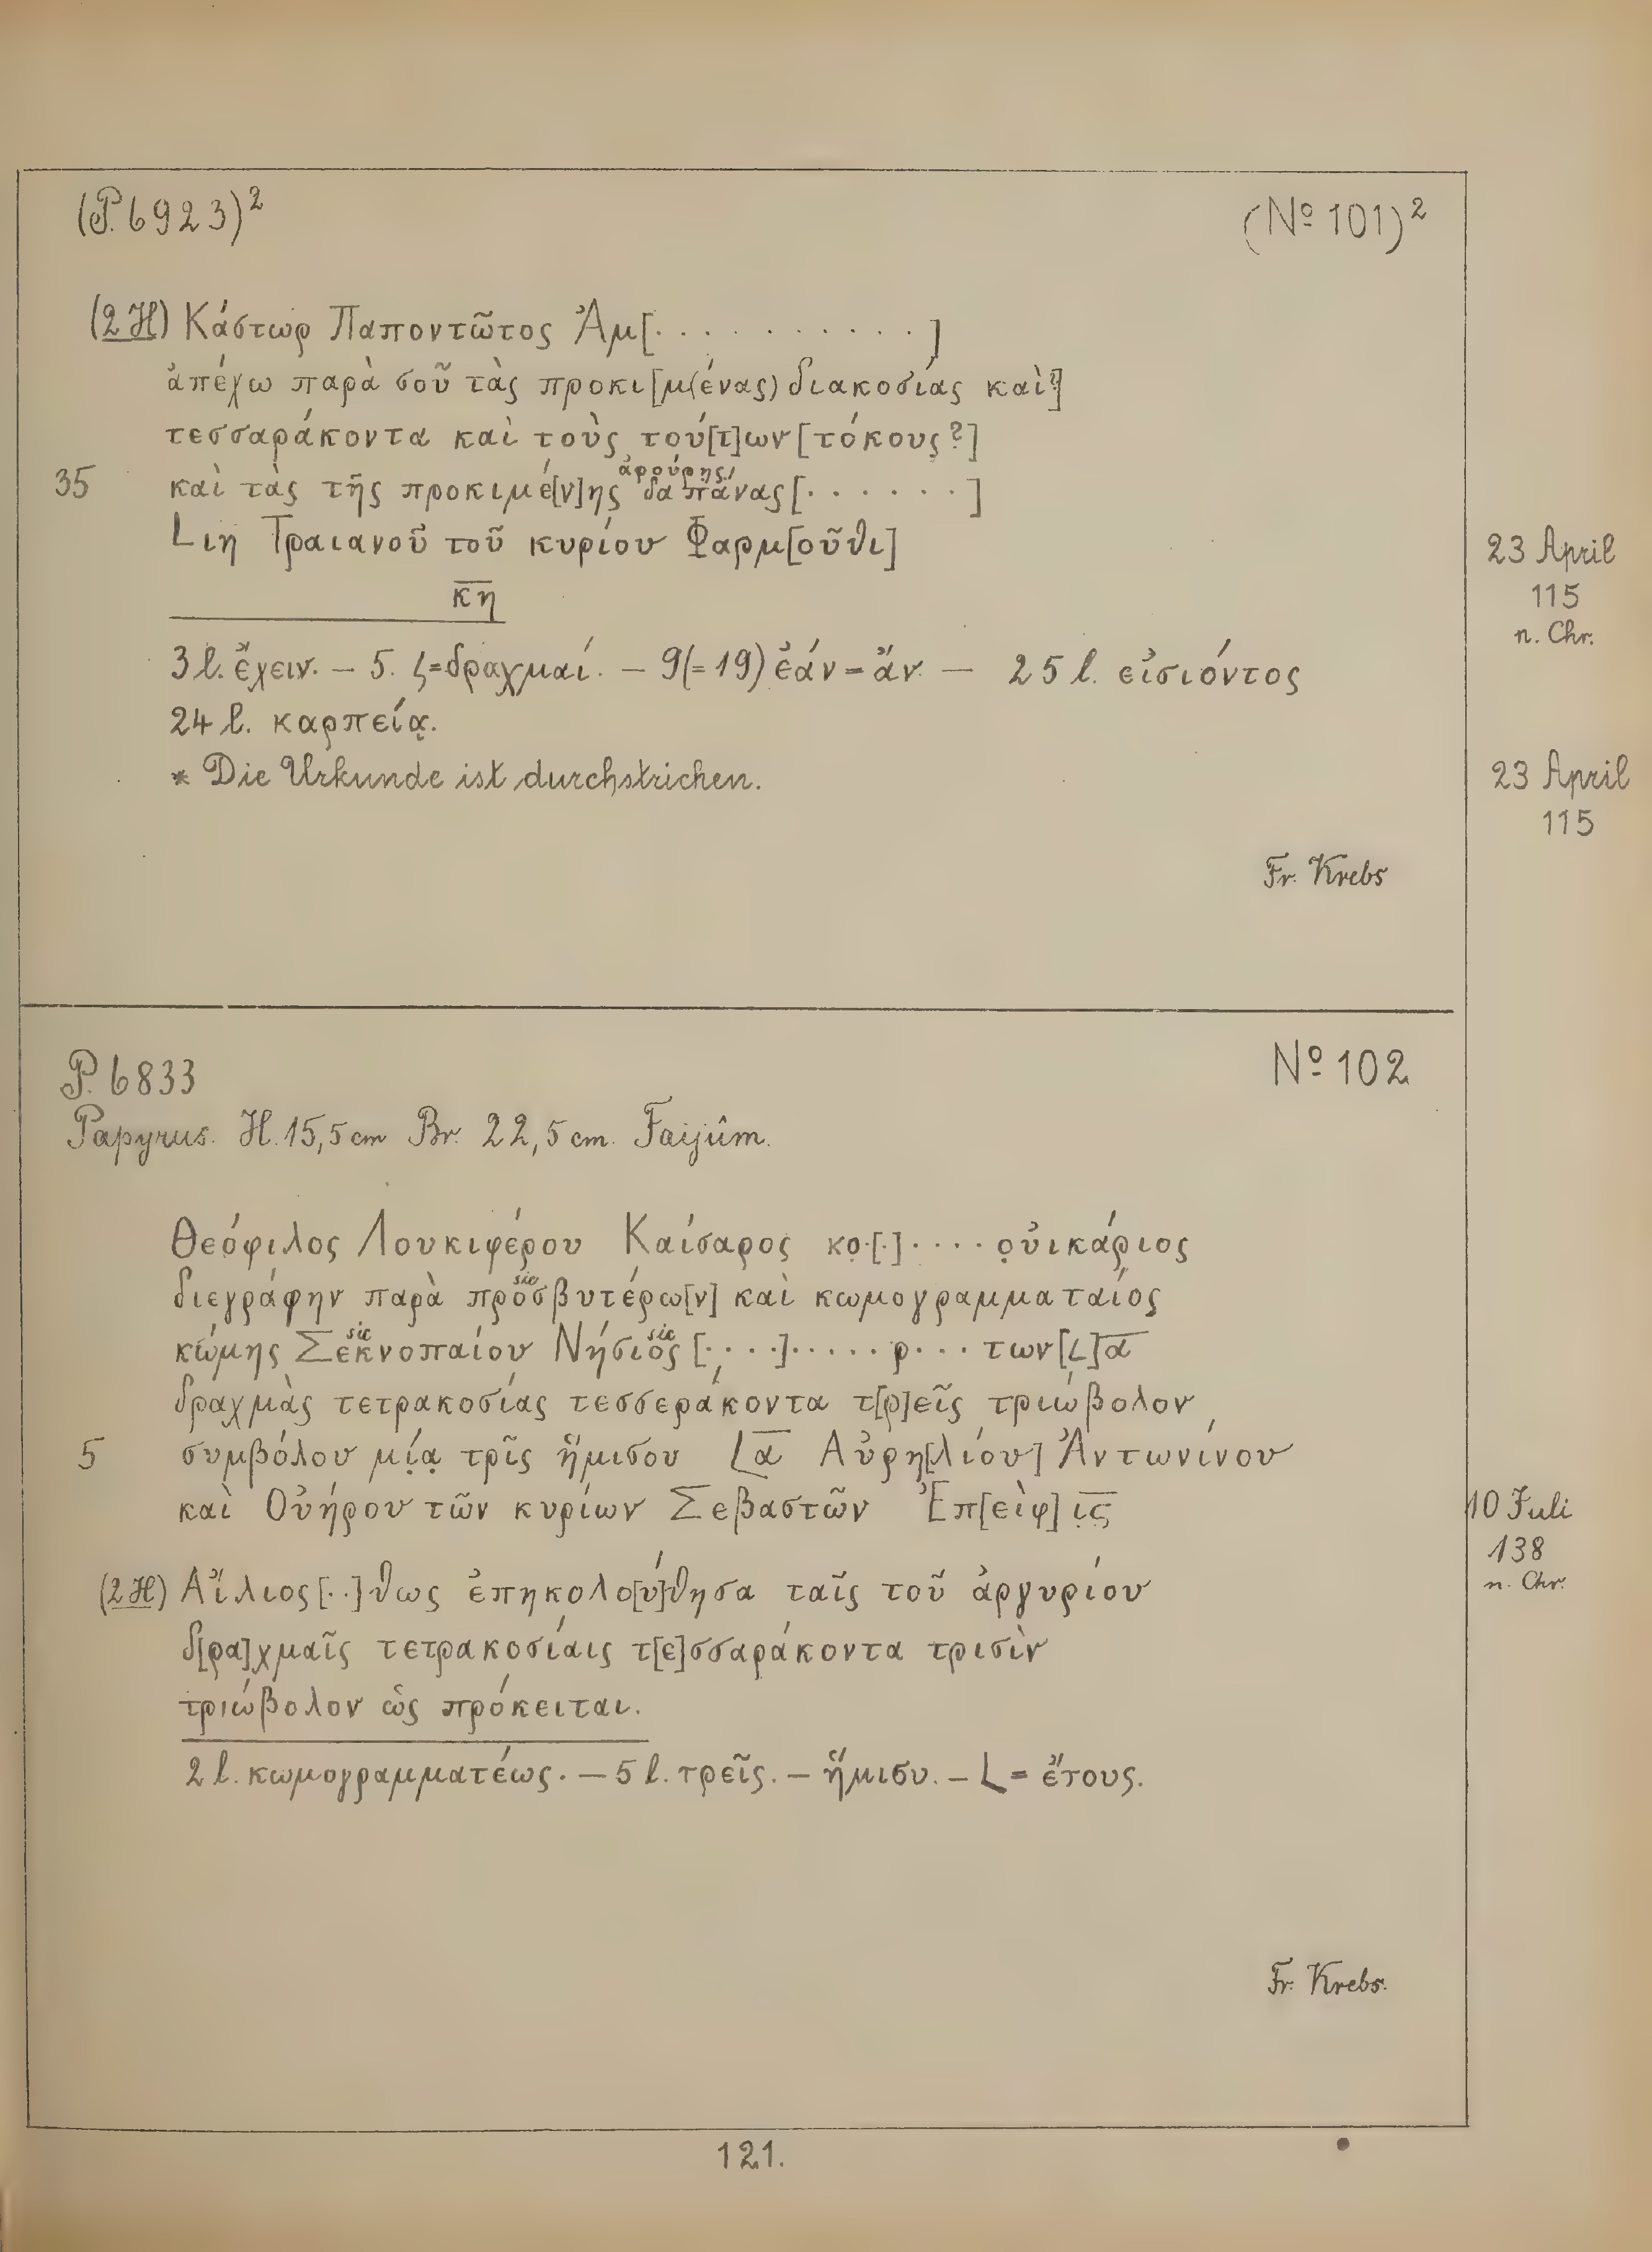 (P. 6923)² (Nº 101)²
(2 H) Κάστωρ Παποντῶτος Ἀμ[. . . . . . . . . . .]
ἀπέχω παρὰ σοῦ τὰς προκι[μ(ένας) διακοσίας καὶ?]
τεσσαράκοντα καὶ τοὺς τού[τ]ων [τόκους?]
ἀρούρης
35 καὶ τὰς τῆς προκιμέ[ν]ης δαπάνας [. . . . . .]
Lιη Τραιανοῦ τοῦ κυρίου Φαρμ[οῦθι] 23 April
κ̅η̅ 115
n. Chr.
3 l. ἔχειν. – 5. ʗ=δραχμαί. – 9(=19) ἐάν=ἄν – 25 l. εἰσιόντος
24 l. καρπείᾳ.
* Die Urkunde ist durchstrichen. 23 April
115
Fr. Krebs
P. 6833 Nº 102
Papyrus. H. 15,5 cm Br. 22,5 cm. Faijûm.
Θεόφιλος Λουκιφέρου Καίσαρος κο.[.] . . . . ο̣ὐικάριος
διεγράφην παρὰ προσβυτέρω[ν] καὶ κωμογραμματαίος
sic
κώμης Σεκνοπαίου Νήσιος [. . . .] . . . . . ρ . . . των [L]α̅
sic sic
δραχμὰς τετρακοσίας τεσσεράκοντα τ[ρ]εῖς τριώβολον
5 συμβόλου μί̣ᾳ τρῖς ἥμισου Lα̅ Αὐρη[λίου] Ἀντωνίνου
καὶ Οὐήρου τῶν κυρίων Σεβαστῶν Ἐπ[εὶφ] ι̣ϛ̅ 10 Juli
138
n. Chr.
(2 H) Αἴλιος [. .]θως ἐπηκολο[ύ]θησα ταῖς τοῦ ἀργυρίου
δ[ρα]χμαῖς τετρακοσίαις τ[ε]σσαράκοντα τρισὶν
τριώβολον ὡς πρόκειται.
2 l. κωμογραμματέως. – 5 l. τρεῖς. – ἥμισυ. – L = ἔτους.
Fr. Krebs.
121.